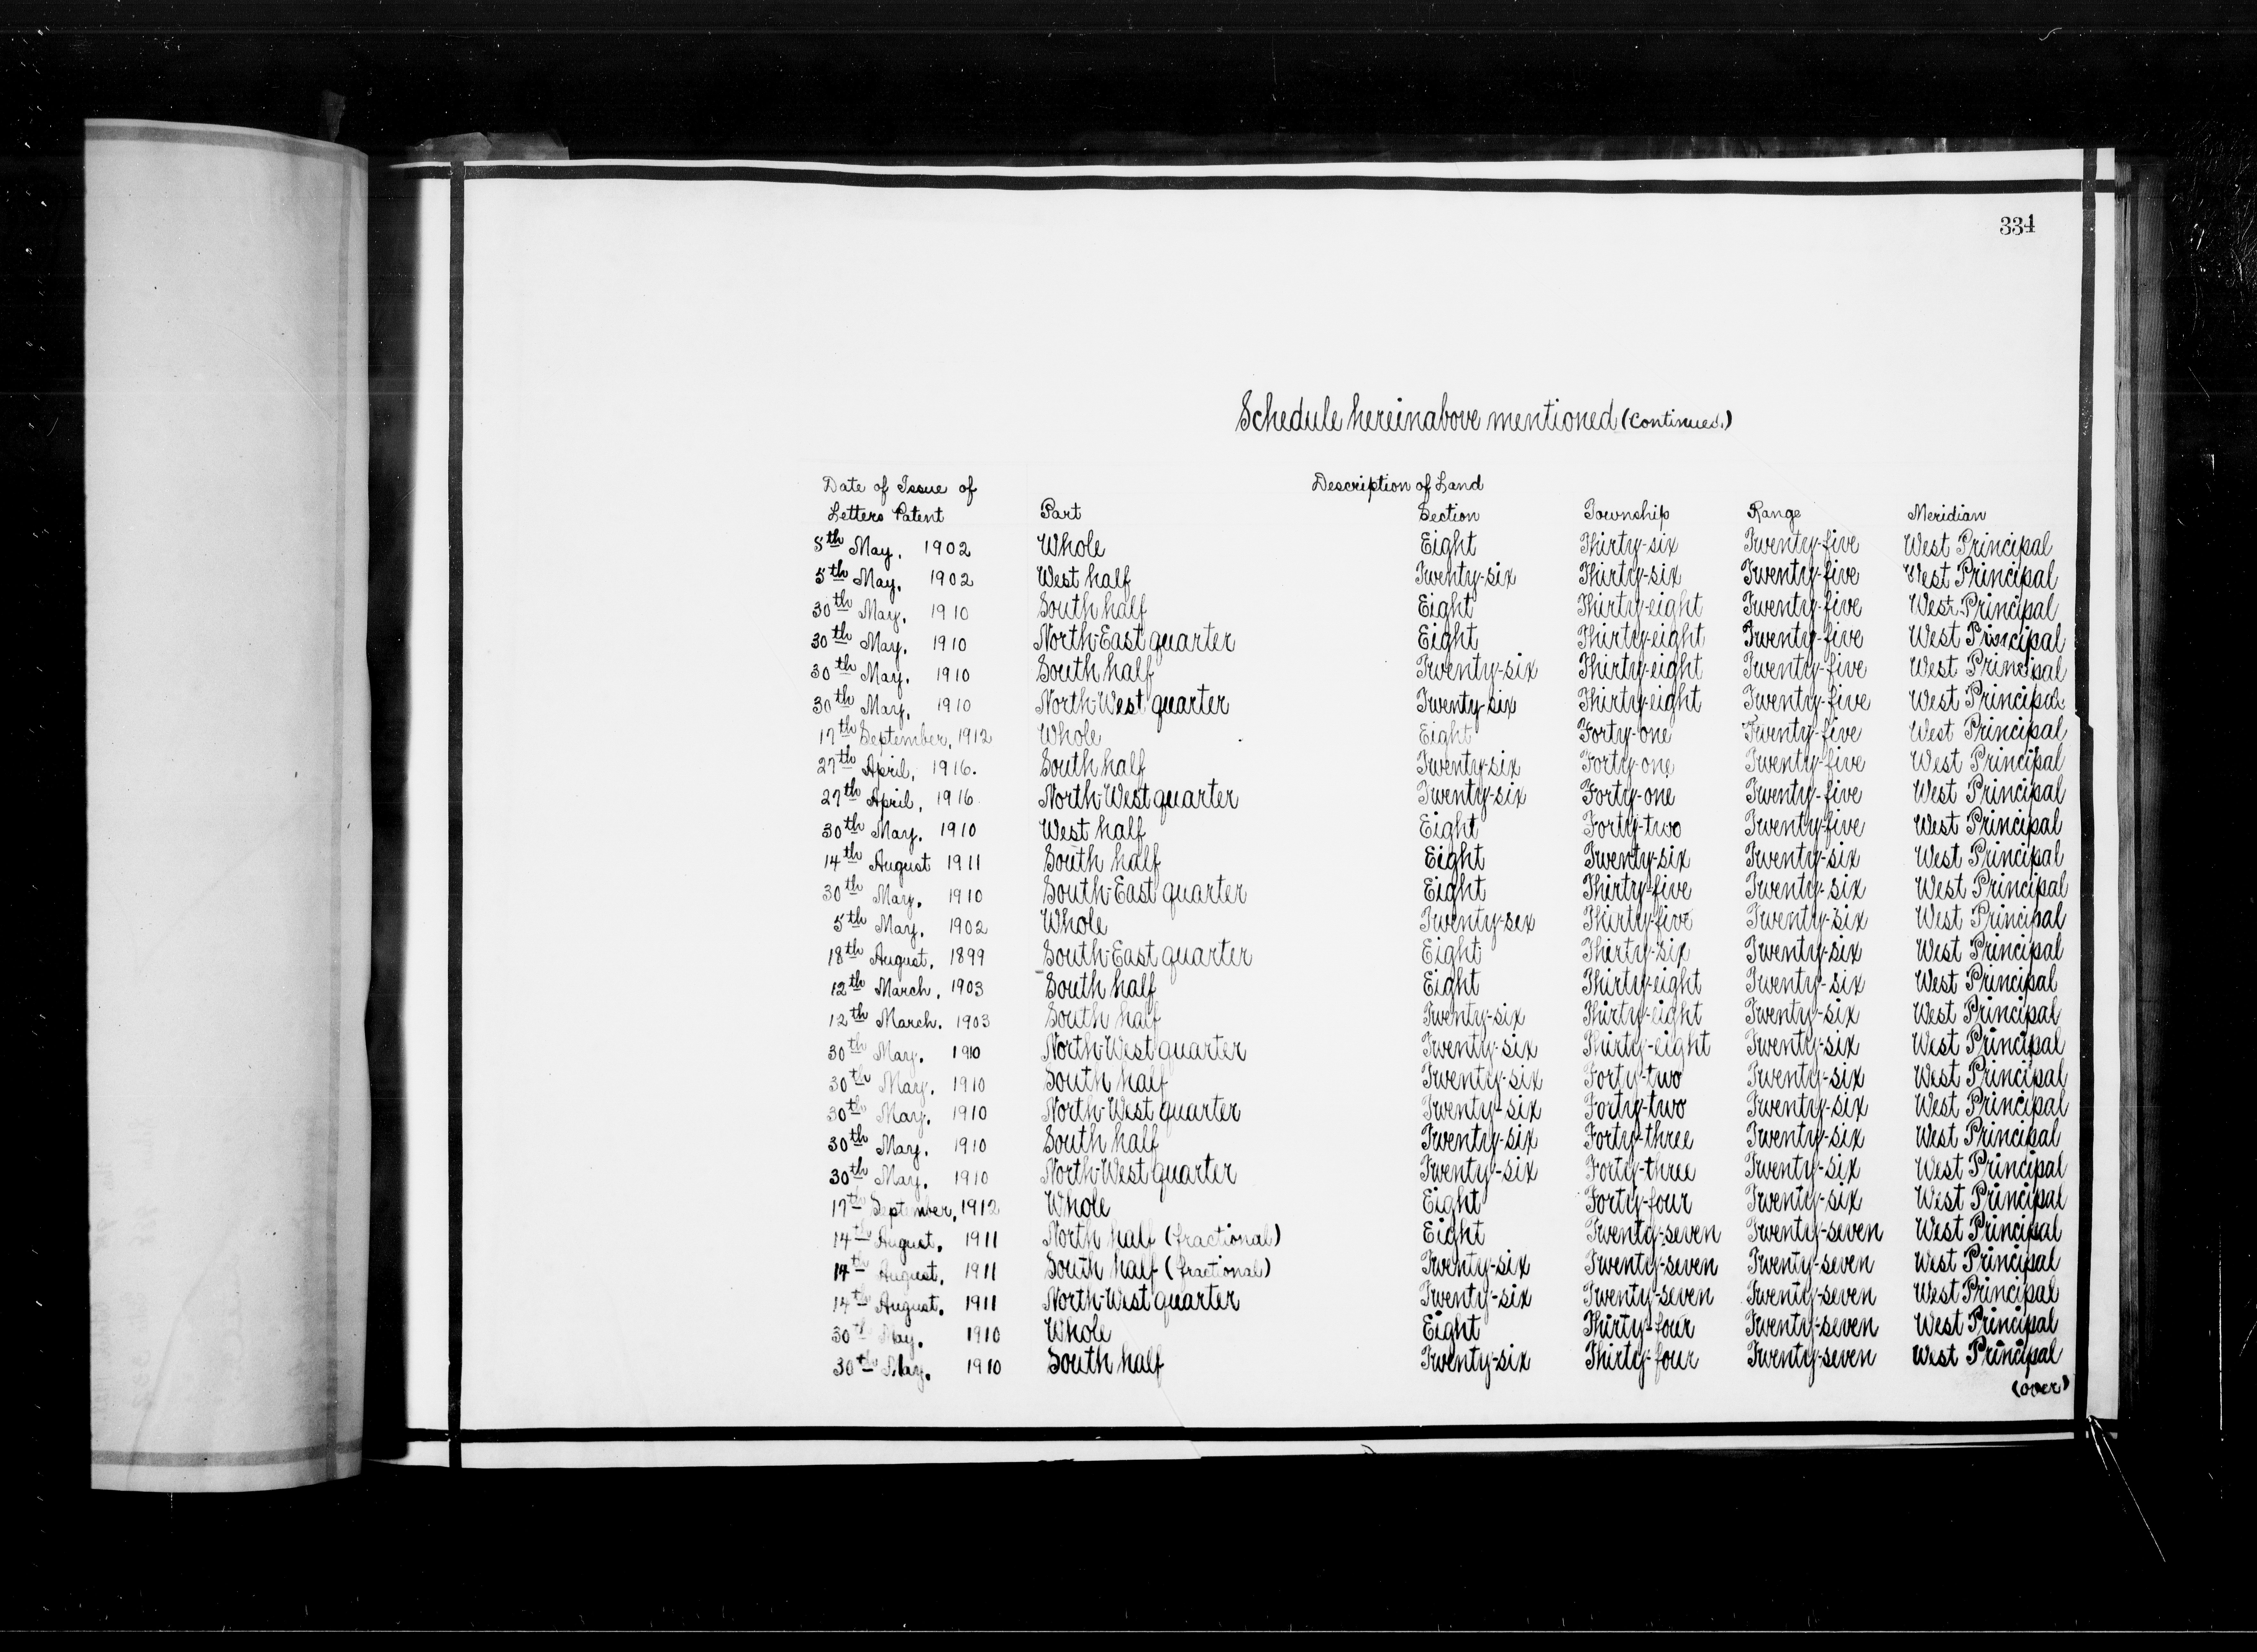 334
Schedule hereinabove mentioned (Continued.)
Date of Issue of Description of Land
Letters Patent Part Section Township Range Meridian
5th May. 1902 Whole Eight Thirty-six Twenty-five West Principal
5th May. 1902 West half Twenty-six Thirty-six Twenty-five West Principal
30th May. 1910 South half Eight Thirty-eight Twenty-five West Principal
30th May. 1910 North-East quarter Eight Thirty-eight Twenty-five West Principal
30th May. 1910 South half Twenty-six Thirty-eight Twenty-five West Principal
30th May. 1910 North-West quarter Twenty-six Thirty-eight Twenty-five West Principal
17th September, 1912 Whole Eight Forty-one Twenty-five West Principal
27th April, 1916. South half Twenty-six Forty-one Twenty-five West Principal
27th April, 1916 North-West quarter Twenty-six Forty-one Twenty-five West Principal
30th May. 1910 West half Eight Forty-two Twenty-five West Principal
14th August 1911 South half Eight Twenty-six Twenty-six West Principal
30th May. 1910 South-East quarter Eight Thirty-five Twenty-six West Principal
5th May. 1902 Whole Twenty-sex Thirty-five Twenty-six West Principal
18th August. 1899 South-East quarter Eight Thirty-six Twenty-six West Principal
12th March, 1903 South half Eight Thirty-eight Twenty-six West Principal
12th March. 1903 South half Twenty-six Thirty-eight Twenty-six West Principal
30th May. 1910 North-West quarter Twenty-six Thirty-eight Twenty-six West Principal
30th May. 1910 South half Twenty-six Forty-two Twenty-six West Principal
30th May. 1910 North-West quarter Twenty-six Forty-two Twenty-six West Principal
30th May. 1910 South half Twenty-six Forty-three Twenty-six West Principal
30th May. 1910 North-West quarter Twenty-six Forty-three Twenty-six West Principal
17th September, 1912 Whole Eight Forty-four Twenty-six West Principal
14th August. 1911 North half (fractional) Eight Twenty-seven Twenty-seven West Principal
14th August. 1911 South half (fractional) Twenty-six Twenty-seven Twenty-seven West Principal
14th August. 1911 North-West quarter Twenty-six Twenty-seven Twenty-seven West Principal
30th May. 1910 Whole Eight Thirty-four Twenty-seven West Principal
30th May. 1910 South half Twenty-six Thirty-four Twenty-seven West Principal
(over)